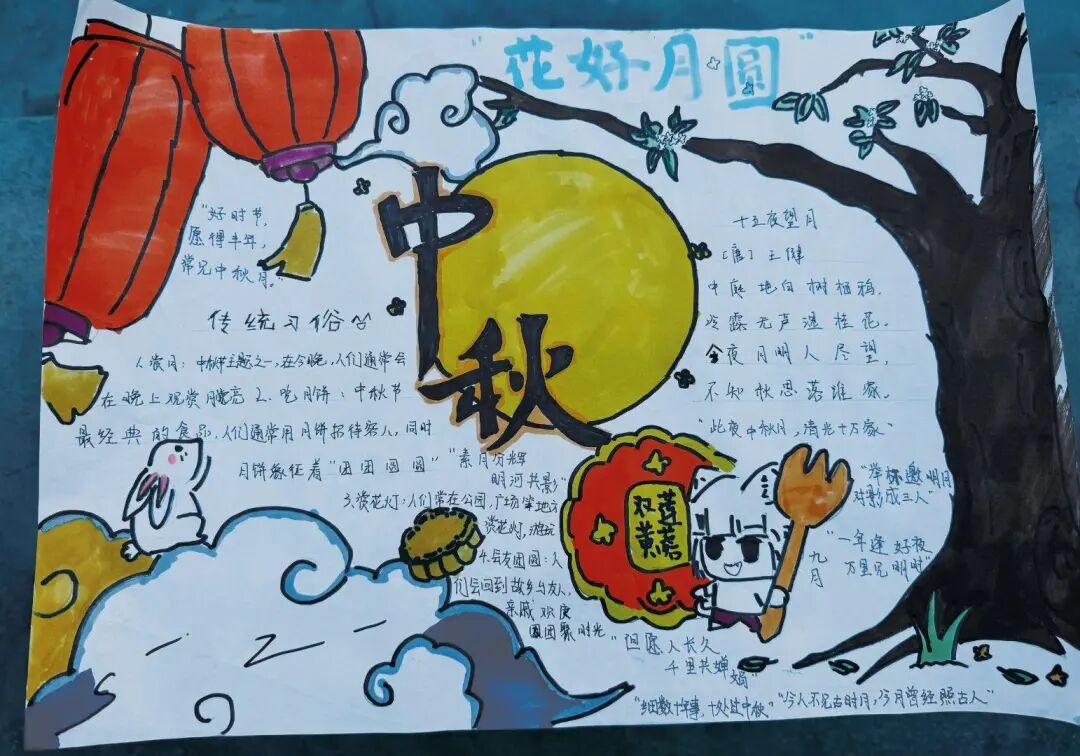 "花好月圆"
中秋
"好时节,
愿得丰年,
常见中秋月。"
传统习俗
1.赏月:中秋主题之一,在今晚,人们通常会
在晚上观赏月亮 2.吃月饼:中秋节
最经典的食品,人们通常用月饼招待客人,同时
月饼象征着"团团圆圆"
"素月分辉
明河共影"
3.赏花灯:人们常在公园,广场等地方
赏花灯,游玩
4.会友团圆:人
们会回到故乡与友人,
亲戚欢度
团聚时光
十五夜望月
[唐]王健
中庭地白树栖鸦,
冷露无声湿桂花。
今夜月明人尽望,
不知秋思落谁家。
"此夜中秋月,清光十万家"
"举杯邀明月
对影成三人"
"一年逢好夜
万里见明时"
九月
双黄莲蓉
"但愿人长久
千里共婵娟"
"细数十年事,十处过中秋"
"今人不见古时月,今月曾经照古人"